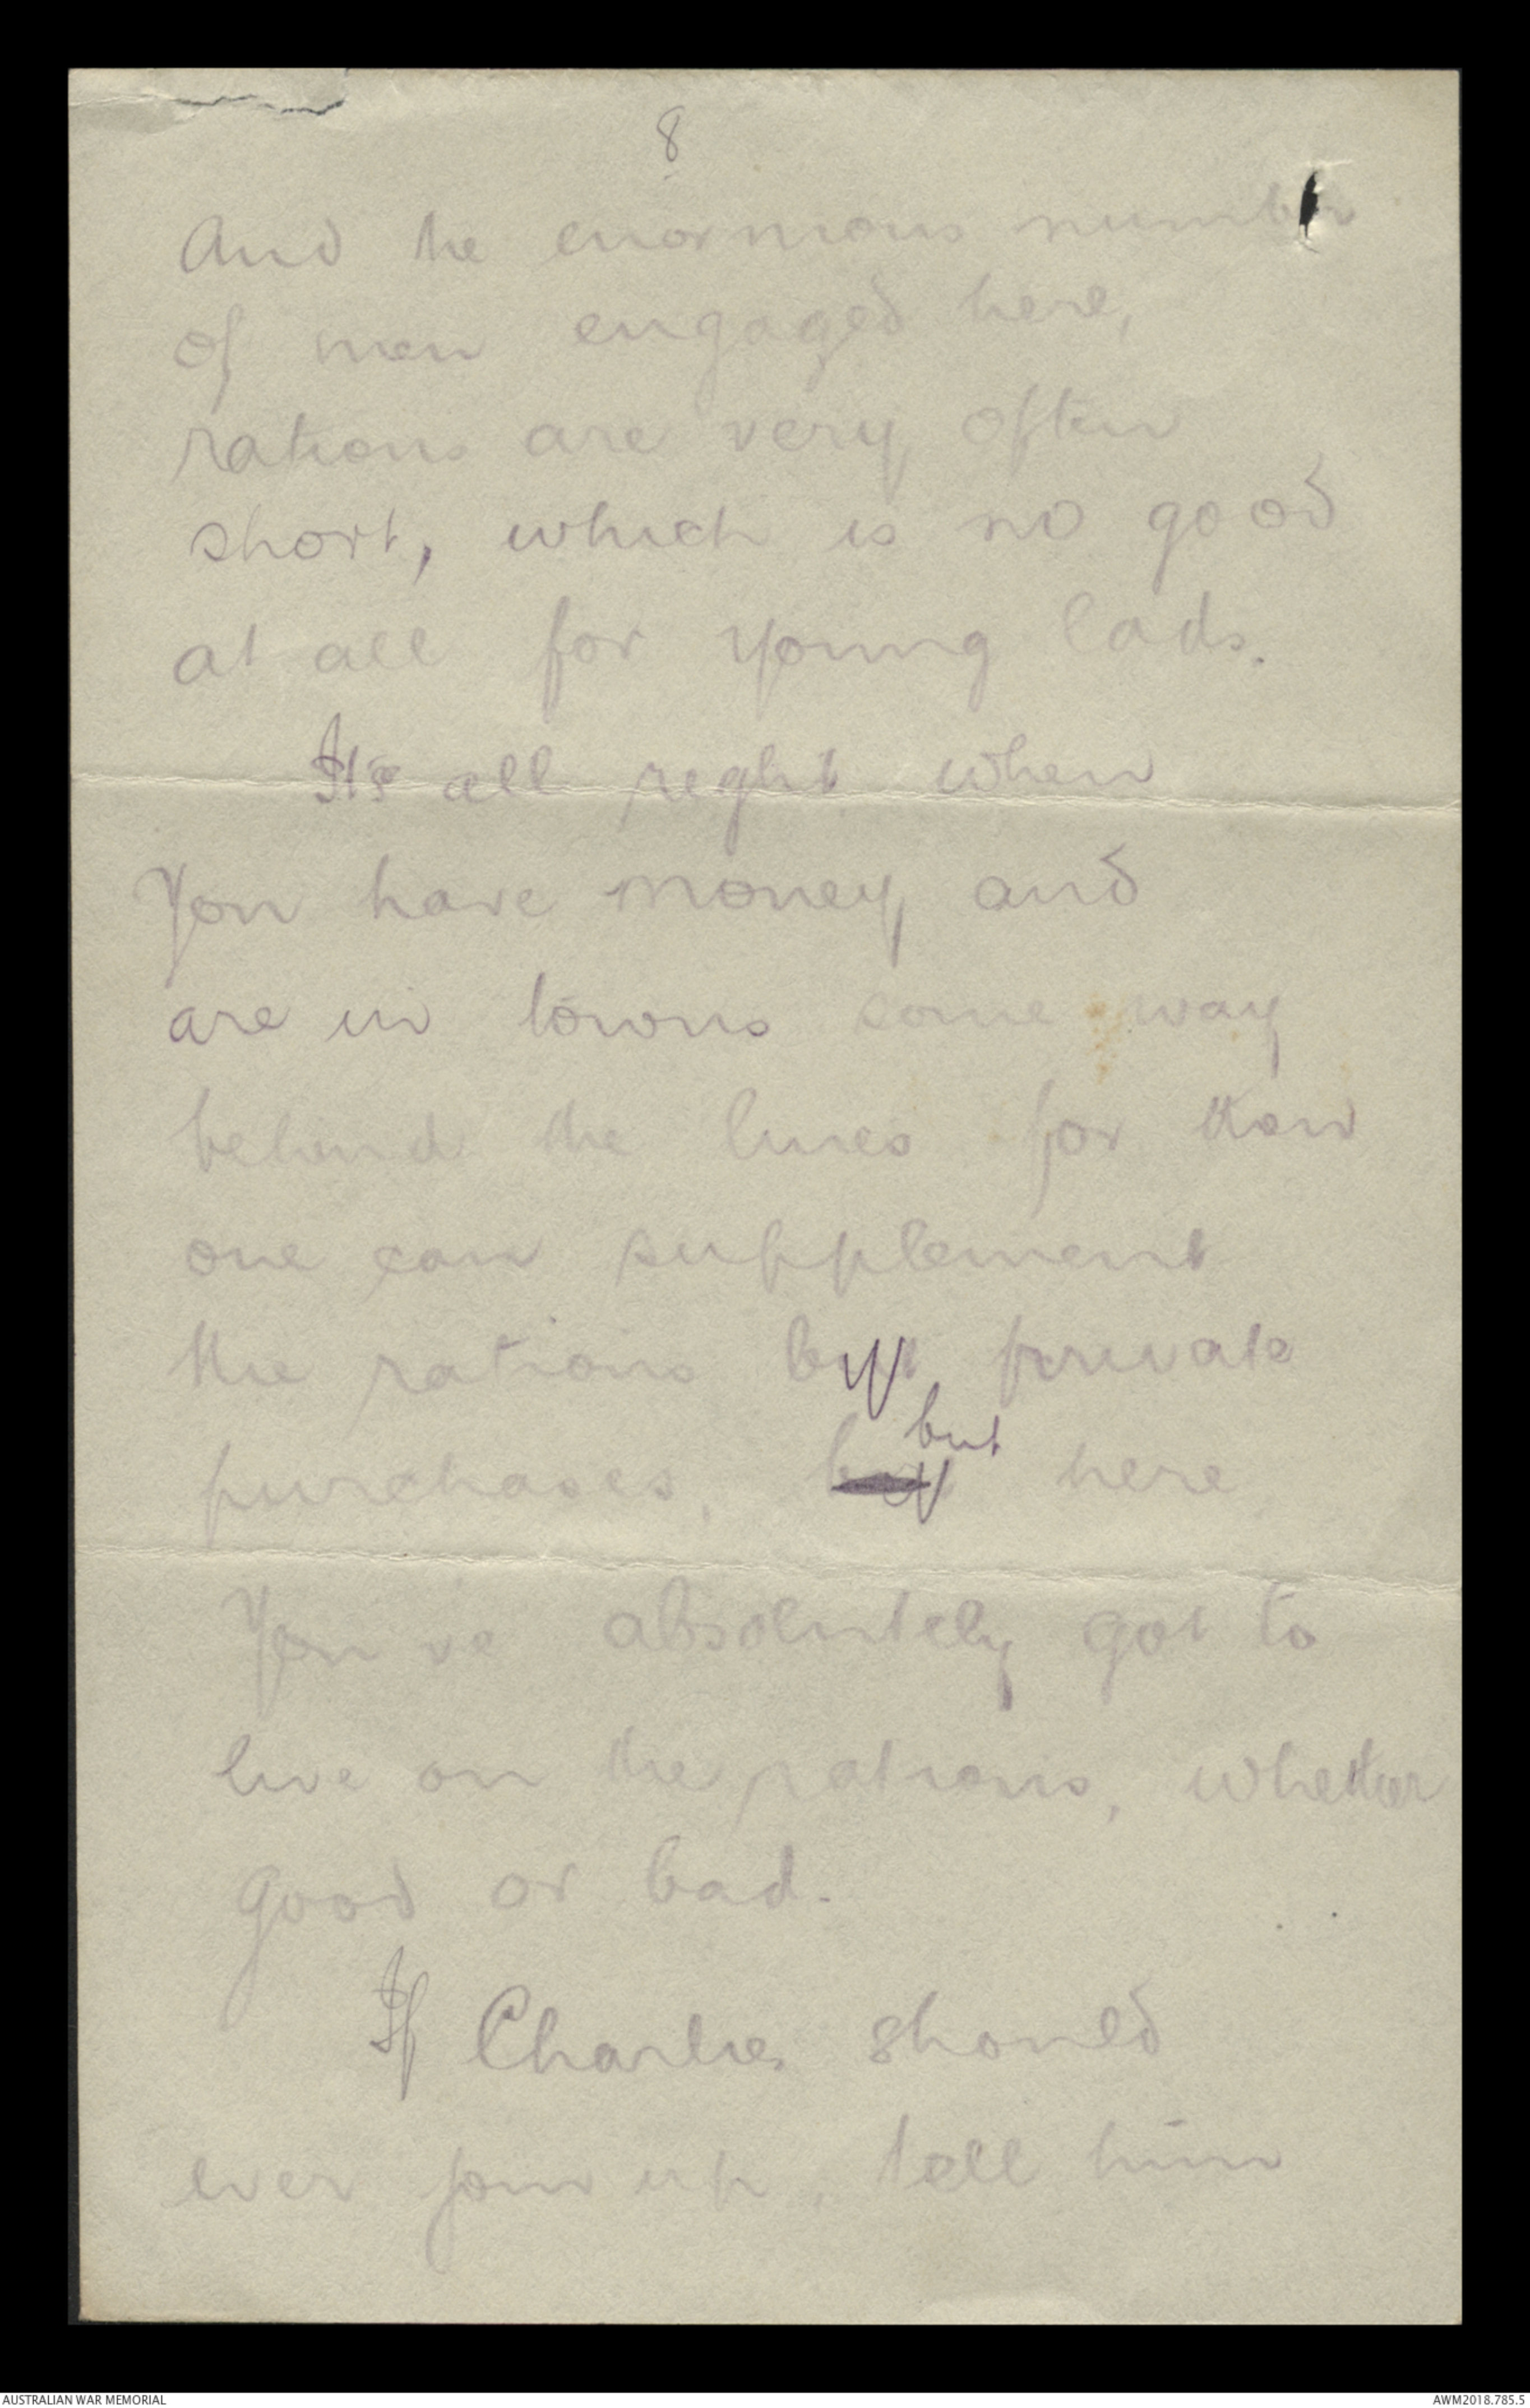 8
And the enormous number
of men engaged here,
rations are very often
short, which is no good
at all for young lads.
It's all right when
You have money and
are in towns some way
behind the lines for then
one can supplement
the rations by private
but
purchases, here
You've absolutely got to
live on the rations, whether
good or bad.
If Charlie should
ever join up, tell him
AUSTRALIAN WAR MEMORIAL AWM2018.785.5